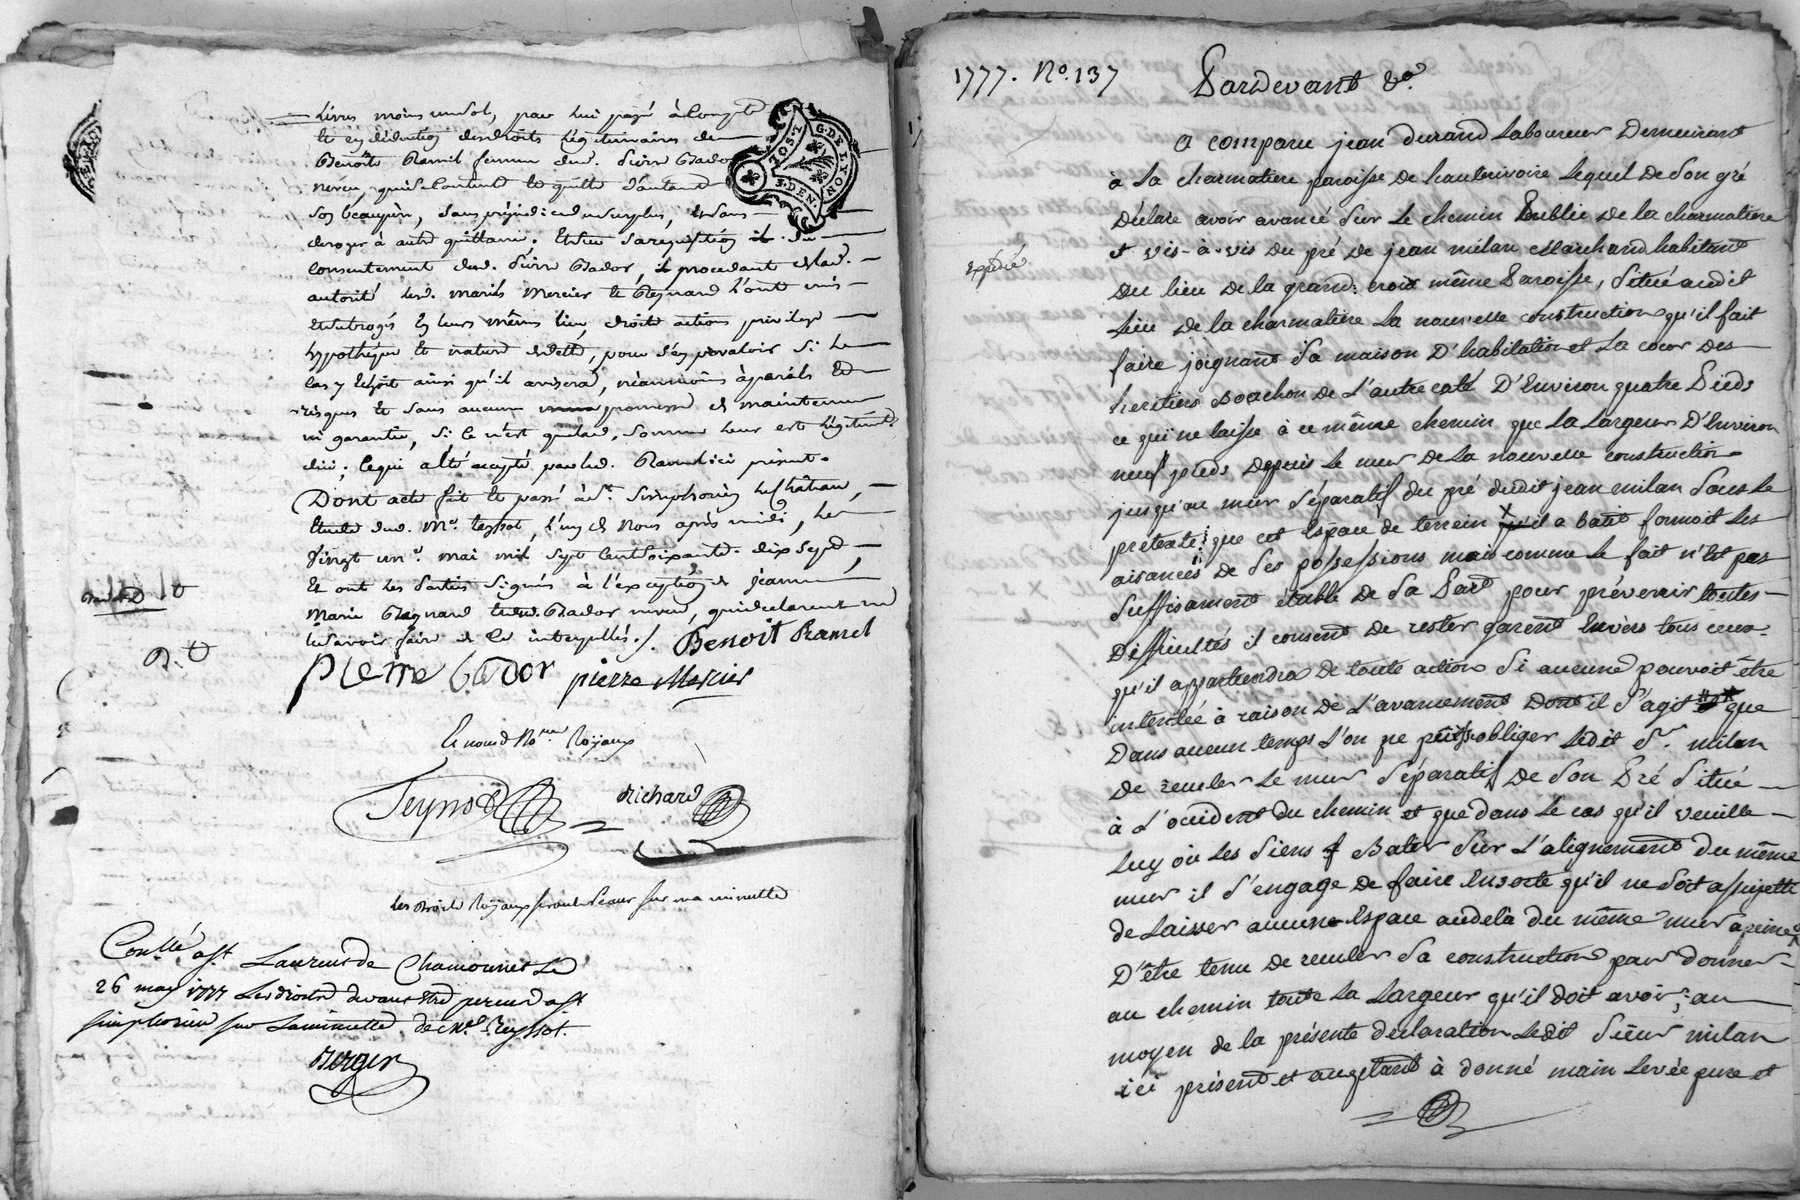 Livres moins un sol, par lui payé à Compte
et en déduction des droits légitimaires de
Benoite Ramel femme dud. Pierre Bador
neveu, qui s'en contente et quitte d'autant
son beaupère, sans préjudice du surplus, et sans
deroger à autre quittance. Et de sa requisition il du
consentement dud. Pierre Bador, il procedant de lad.
autorité lesd. mariés Mercier et Reynard l'ont mis
et subrogé en leurs mêmes lieu, droits actions privilege
hypothèque et nature de dette, pour s'en prevaloir si le
cas y echoit ainsi qu'il avisera, néanmoins à ses périls et
risques et sans aucune promesse de maintenue
ni garantie, si ce n'est que lad. somme leur est légitimement
due; ce qui a été accepté par led. Ramel ici présent.
Dont acte fait et passé à St. Simphorien le Château,
Etude dud. Me. Teyssot, l'un de Nous après midi, le
vingt un mai mil sept cent soixante-dix sept,
et ont les Parties signés à l'exception de Jeanne
Marie Reynard et dud. Bador neveu, qui declarent ne
le savoir faire de ce interpellés./. Benoit Ramel
pierre bador pierre Mercier
Et nous d. Nores Royaux
Teyssot Richard
Les Droits Royaux seront percus sur ma minutte
Conllé a St. Laurent de Chamousset le
26 may 1777 Les droits devant etre percus a St
simphorien sur la minutte de Me. Teyssot.
Berger
G. DE LYON
1777. No. 137
Pardevant &a.
expédié
A comparu jean durand Laboureur Demeurant
à La charmatiere paroisse De hauterivoire Lequel De Son gré
Déclare avoir avancé Sur Le chemin Public De la charmatiere
et vis-à-vis Du pré De jean milan Marchand habitant
Du lieu De la grand: croix même Paroisse, Situé audit
Lieu De la charmatiere La nouvelle construction qu'il fait
faire joignant Sa maison D'habitation et La cour Des
heritiers Bouchon De L'autre coté D'Environ quatre Pieds
ce qui ne laisse à ce même chemin que La Largeur D'Environ
neuf pieds Depuis Le mur De La nouvelle construction
jusqu'au mur Séparatif du pré dudit jean milan Sous Le
prétexte que cet Espace de terrein qu'il a bati formoit Les
aisances De Ses possessions mais comme Le fait n'est pas
Suffisament établi De Sa Part pour prévenir toutes
Difficultés il consent De rester garent Envers tous ceux
qu'il appartiendra De toute action Si aucune pouvoit être
intentée à raison De L'avancement Dont il S'agit que
Dans aucun temps L'on ne puisse obliger Ledit Sr. milan
De reculer Le mur Séparatif De Son Pré Situé
à L'occident Du chemin et que dans Le cas qu'il veuille
Luy ou Les Siens Batir Sur L'alignement Du même
mur il S'engage De faire Ensorte qu'il ne Soit assujetti
De Laisser aucune Espace audela du même mur a peine
D'être tenu De reculer Sa construction pour donner
au chemin toute La Largeur qu'il doit avoir; au
moyen de la présente déclaration Ledit Sieur milan
ici présent et acceptant à donné main Levée pure et